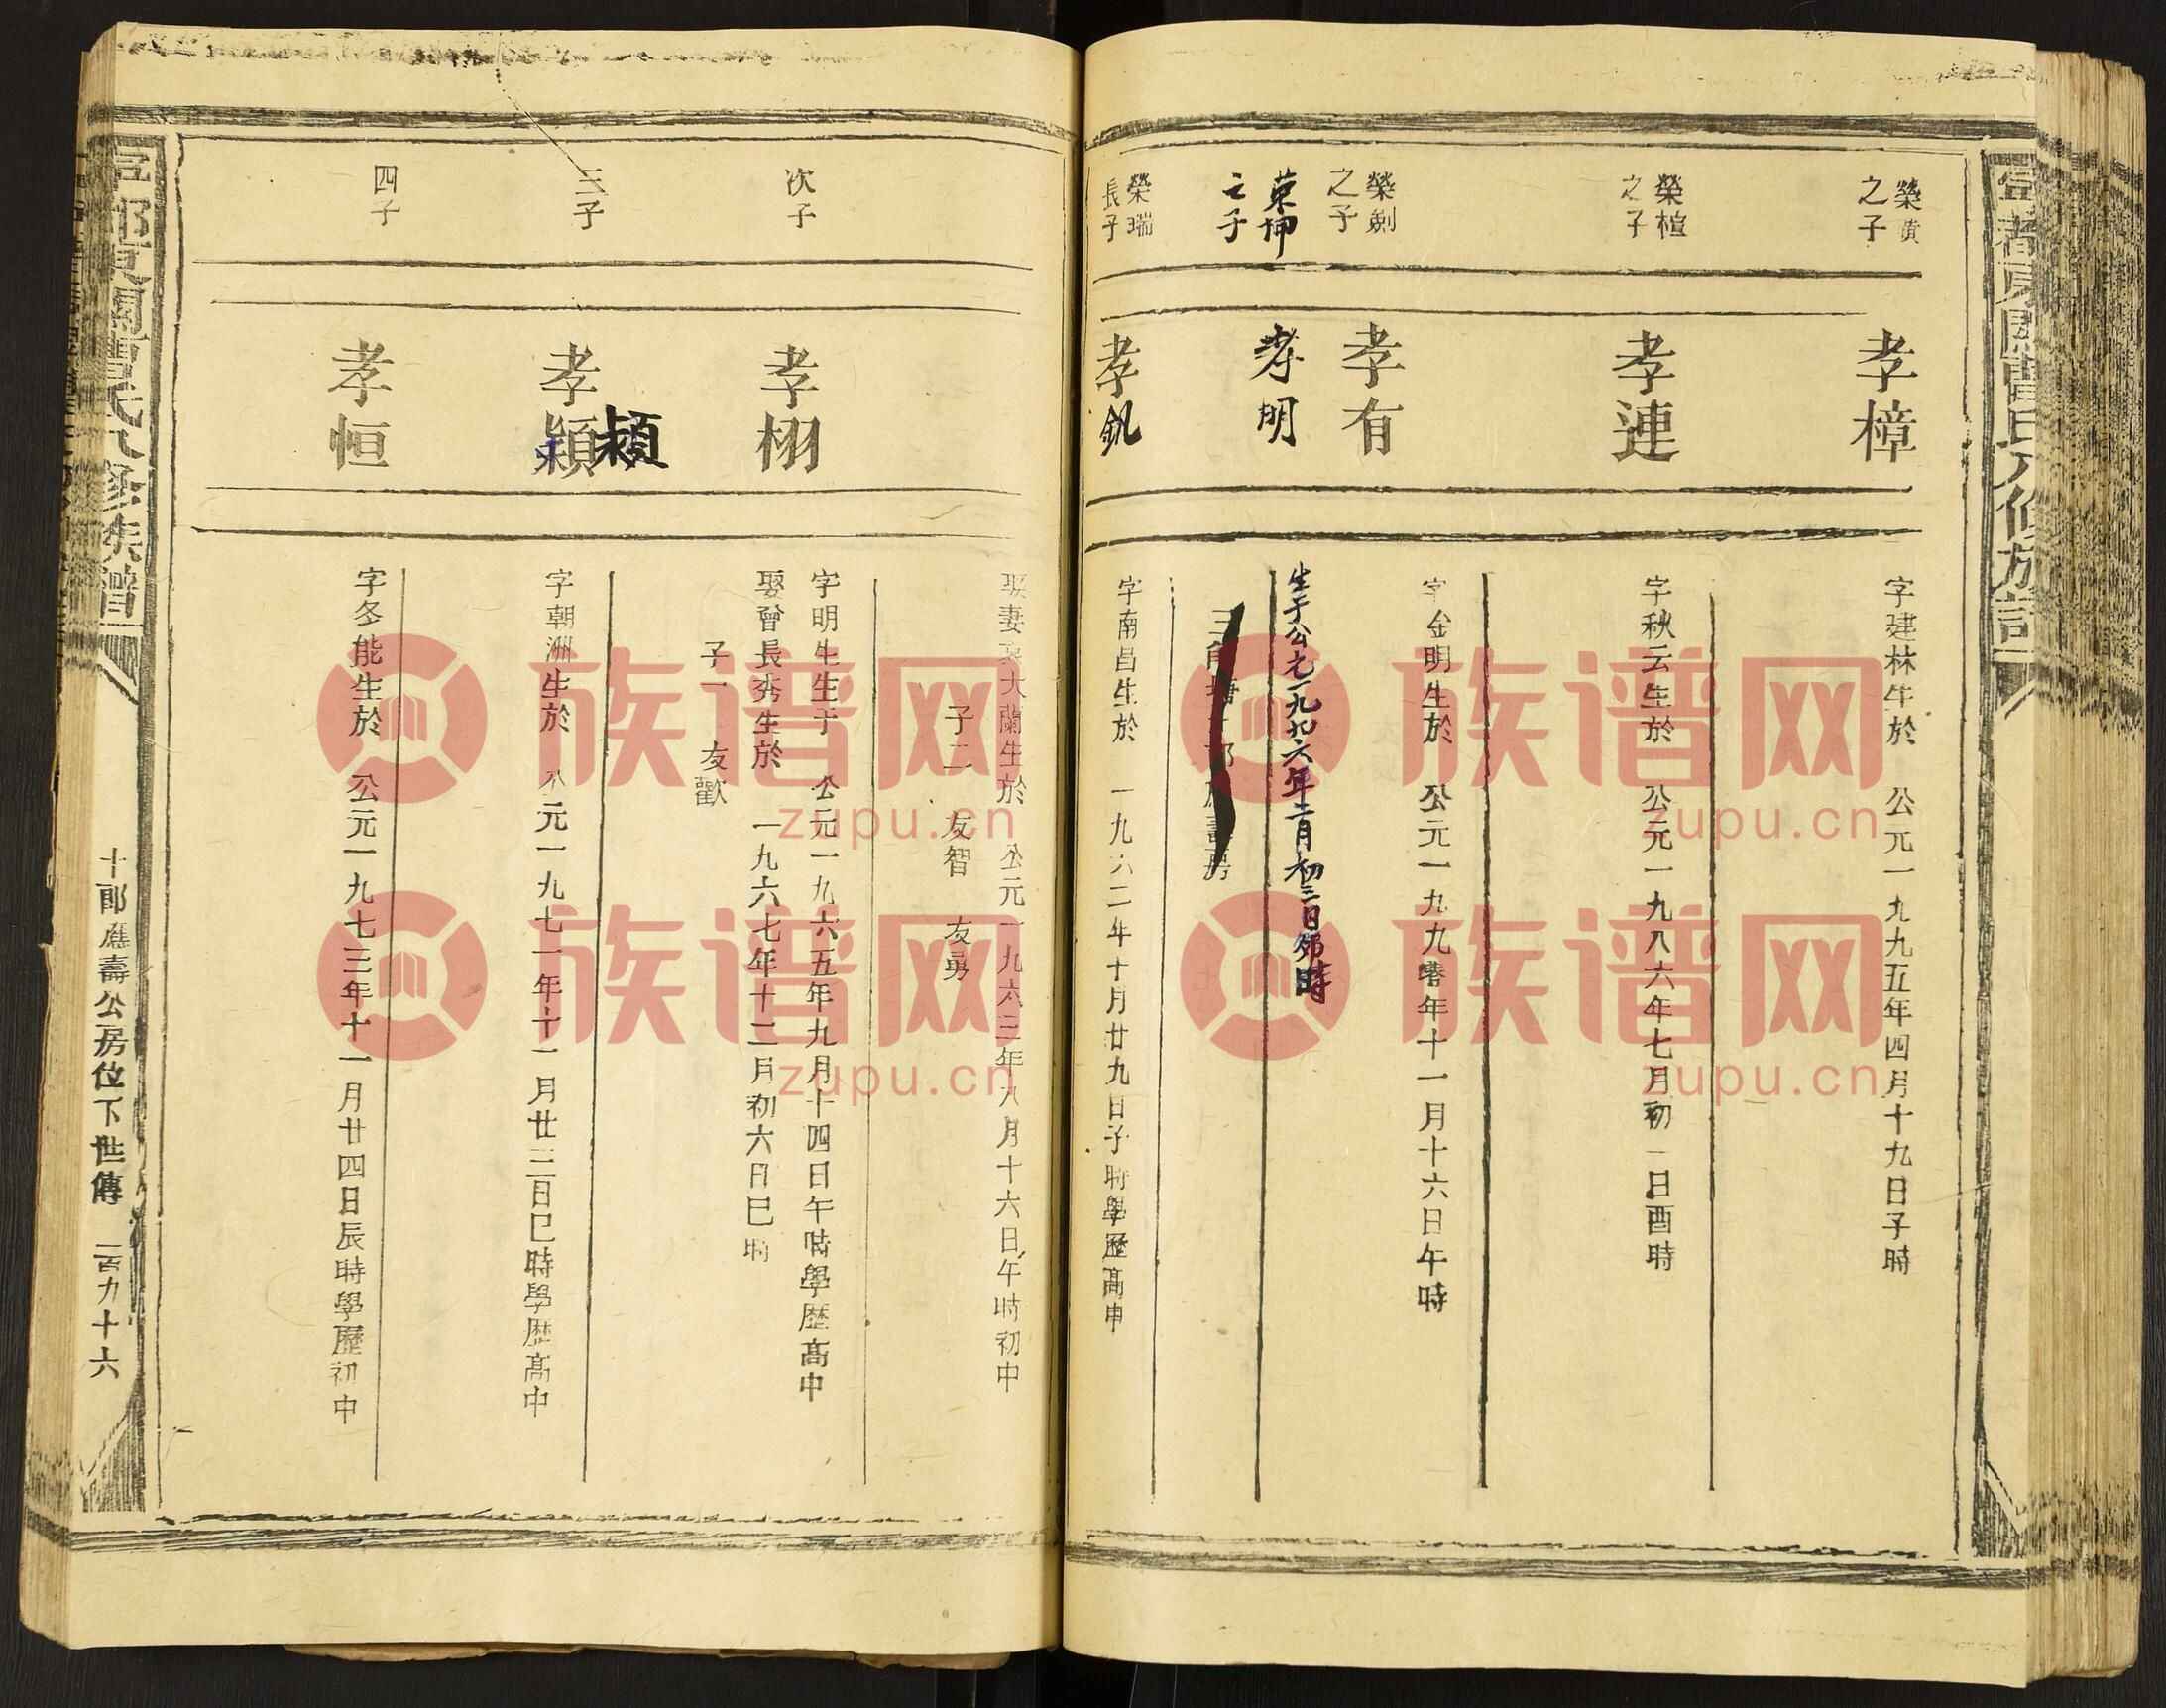 寧都東關曹氏八修族譜
榮黃
之子
孝樟
字建林生於 公元一九九五年四月十九日子時
榮楦
之子
孝連
字秋云生於 公元一九八六年七月初一日酉時
榮劍
之子
孝有
字金明生於 公元一九九零年十一月十六日午時
榮坤
之子
孝明
生于公元一九九六年二月初三日卯時
榮瑞
長子
孝釩
字南昌生於 一九六二年十月廿九日子時學歷高中
大蘭生於 公元一九六三年八月十六日午時初中
子二 友智 友勇
次子
孝栩
字明生生于 公元一九六五年九月十四日午時學歷高中
娶曾長秀生於 一九六七年十二月初六日巳時
子一 友歡
三子
孝穎
穎
字朝洲生於 公元一九七一年十一月廿三日巳時學歷高中
四子
孝恒
字冬能生於 公元一九七三年十一月廿四日辰時學歷初中
寧都東關曹氏八修族譜
十郎應壽公房位下世傳 一百九十六
族谱网
zupu.cn
族谱网
zupu.cn
族谱网
zupu.cn
族谱网
zupu.cn